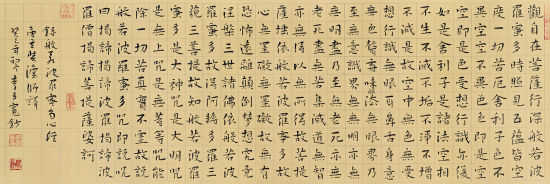 觀自在菩薩行深般若波
羅蜜多時照見五蘊皆空
度一切苦厄舍利子色不
異空空不異色色即是空
空即是色受想行識亦復
如是舍利子是諸法空相
不生不滅不垢不淨不增
不減是故空中無色無受
想行識無眼耳鼻舌身意
無色聲香味觸法無眼界乃
至無意識界無無明亦無
無明盡乃至無老死亦無
老死盡無苦集滅道無智
亦無得以無所得故菩提
薩埵依般若波羅蜜多故
心無罣礙無罣礙故無有
恐怖遠離顛倒夢想究竟
涅槃三世諸佛依般若波
羅蜜多故得阿耨多羅三
藐三菩提故知般若波羅
蜜多是大神咒是大明咒
是無上咒是無等等咒能
除一切苦真實不虛故說
般若波羅蜜多咒即說咒
曰揭諦揭諦波羅揭諦波
羅僧揭諦菩提薩婆訶
錄般若波羅蜜多心經
癸巳初